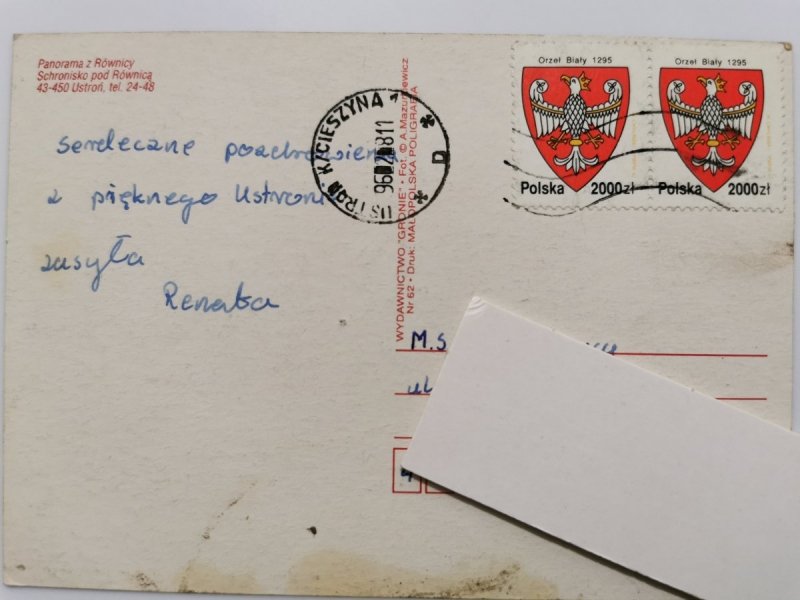 Panorama z Równicy
Schronisko pod Równicą
43-450 Ustroń, tel. 24-48
serdeczne pozdrowienia
z pięknego Ustronia
zasyła
Renata
USTROŃ K/CIESZYNA 1
WYDAWNICTWO "GRONIE" • Fot. © A. Mazurkiewicz
Nr 62 • Druk: MAŁOPOLSKA POLIGRAFIA
Orzeł Biały 1295
Polska 2000zł
Orzeł Biały 1295
Polska 2000zł
M.S
ul
4